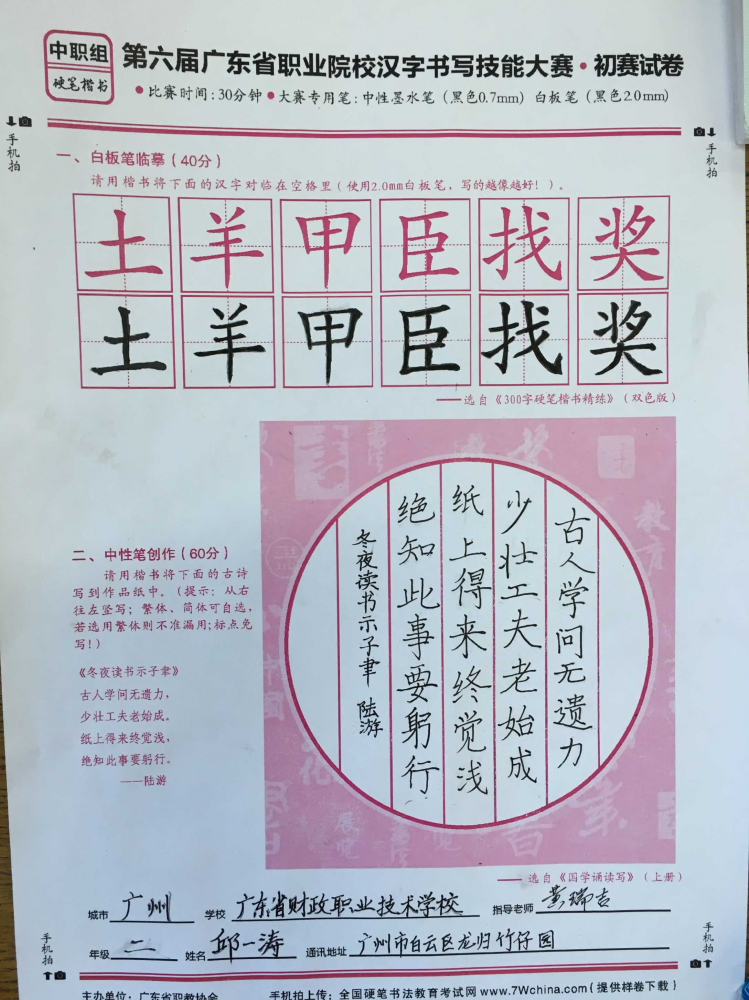 中职组
硬笔楷书
第六届广东省职业院校汉字书写技能大赛·初赛试卷
●比赛时间:30分钟●大赛专用笔:中性墨水笔（黑色0.7mm）白板笔（黑色2.0mm）
手机拍
手机拍
一、白板笔临摹（40分）
请用楷书将下面的汉字对临在空格里（使用2.0mm白板笔，写的越像越好！）。
土羊甲臣找奖
土羊甲臣找奖
——选自《300字硬笔楷书精练》（双色版）
二、中性笔创作（60分）
请用楷书将下面的古诗
写到作品纸中。（提示：从右
往左竖写；繁体、简体可自选，
若选用繁体则不准漏用;标点免
写！）
《冬夜读书示子聿》
古人学问无遗力，
少壮工夫老始成。
纸上得来终觉浅，
绝知此事要躬行。
——陆游
古人学问无遗力
少壮工夫老始成
纸上得来终觉浅
绝知此事要躬行
冬夜读书示子聿 陆游
——选自《国学诵读写》（上册）
城市 广州 学校 广东省财政职业技术学校 指导老师 黄瑞吉
年级 二 姓名 邱一涛 通讯地址 广州市白云区龙归竹仔园
手机拍
手机拍
主办单位：广东省职教协会 手机拍上传：全国硬笔书法教育考试网 www.7Wchina.com（提供样卷下载）